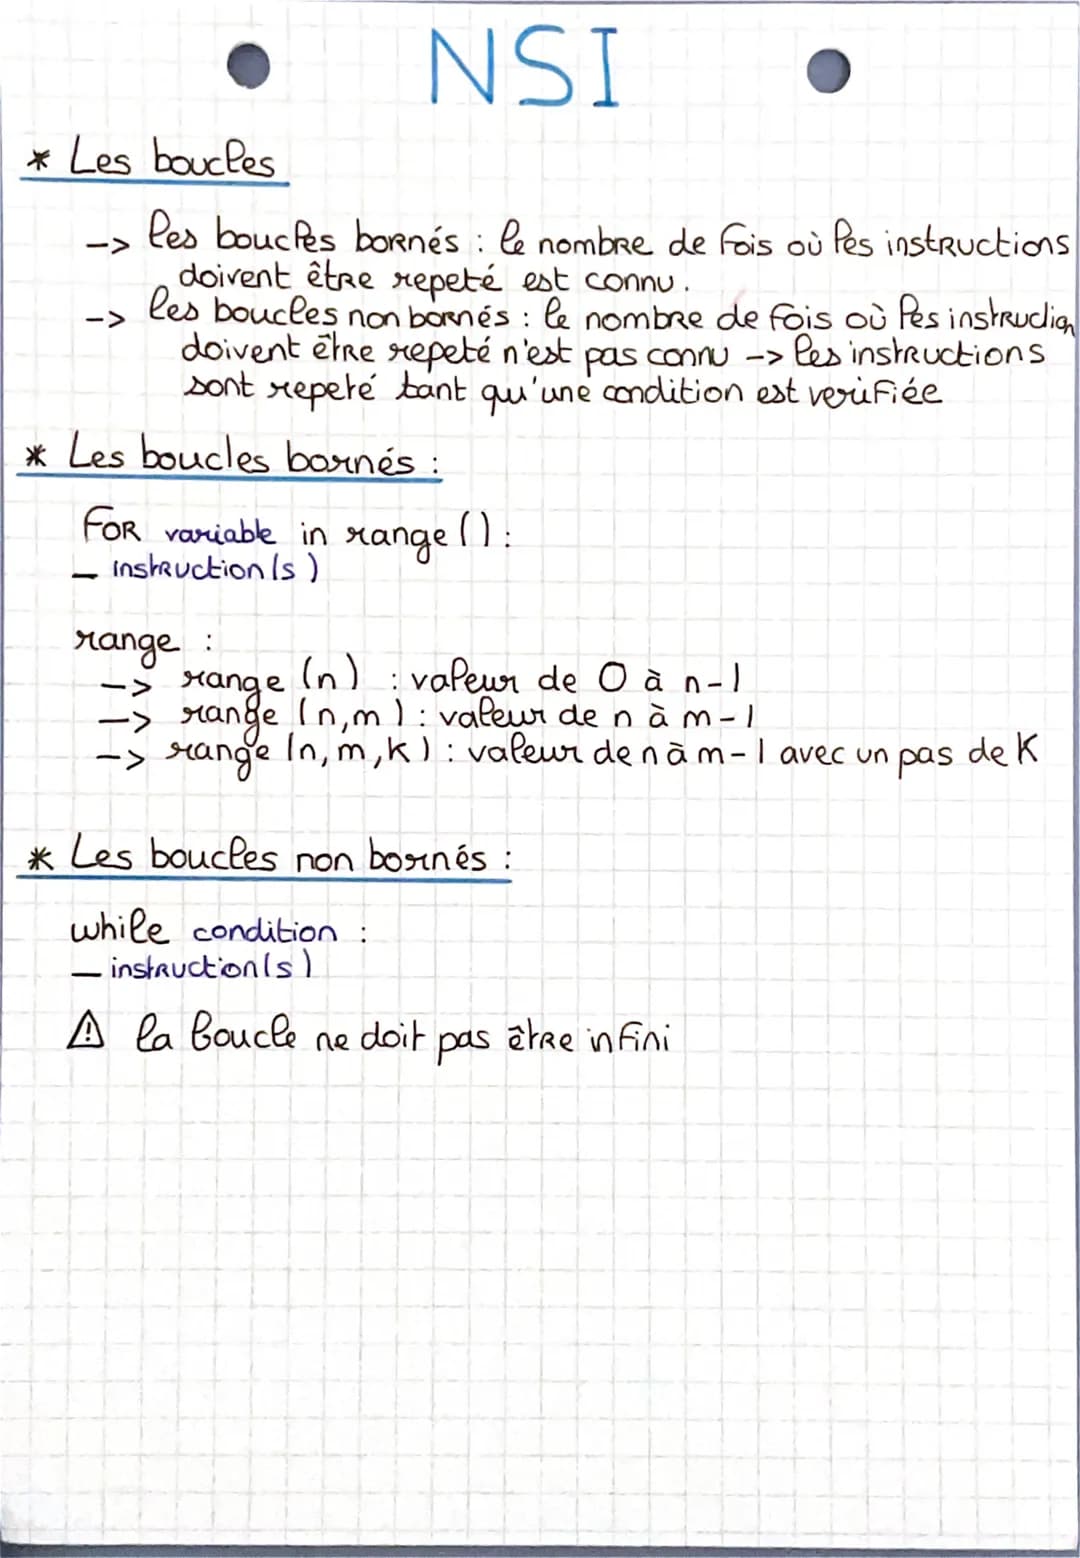 NSI
* Les boucles
-> les boucles bornés : le nombre de fois où les instructions
doivent être repeté est connu.
-> les boucles non bornés : le nombre de fois où les instruction
doivent être repeté n'est pas connu -> les instructions
sont repeté tant qu'une condition est verifiée
* Les boucles bornés :
For variable in range () :
_ instruction(s)
range :
-> range (n) : valeur de 0 à n-1
-> range (n,m) : valeur de n à m-1
-> range (n,m,k) : valeur de n à m-1 avec un pas de K
* Les boucles non bornés :
while condition :
_ instruction(s)
⚠ la boucle ne doit pas être infini